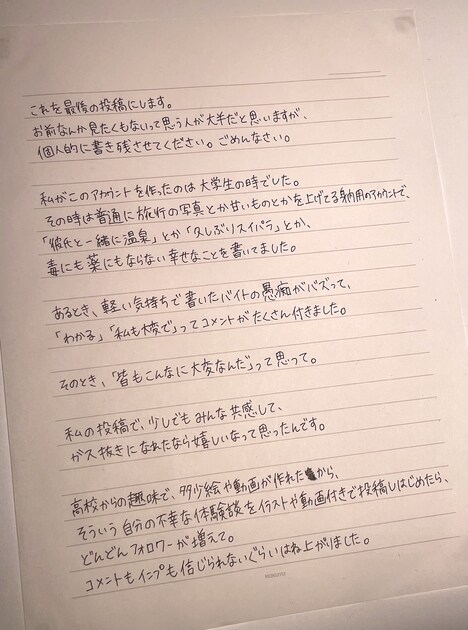 これを最後の投稿にします。
お前なんか見たくもないって思う人が大半だと思いますが、
個人的に書き残させてください。ごめんなさい。
私がこのアカウントを作ったのは大学生の時でした。
その時は普通に旅行の写真とか甘いものとかを上げてる身内用のアカウントで、
「彼氏と一緒に温泉」とか「久しぶりスイパラ」とか、
毒にも薬にもならない幸せなことを書いてました。
あるとき、軽い気持ちで書いたバイトの愚痴がバズって、
「わかる」「私も大変で」ってコメントがたくさん付きました。
そのとき、「皆もこんなに大変なんだ」って思って。
私の投稿で、少しでもみんな共感して、
ガス抜きになれたなら嬉しいなって思ったんです。
高校からの趣味で、多少絵や動画が作れたから、
そういう自分の不幸な体験談をイラストや動画付きで投稿しはじめたら、
どんどんフォロワーが増えて。
コメントもインプも信じられないぐらいはね上がりました。
KOKUYO